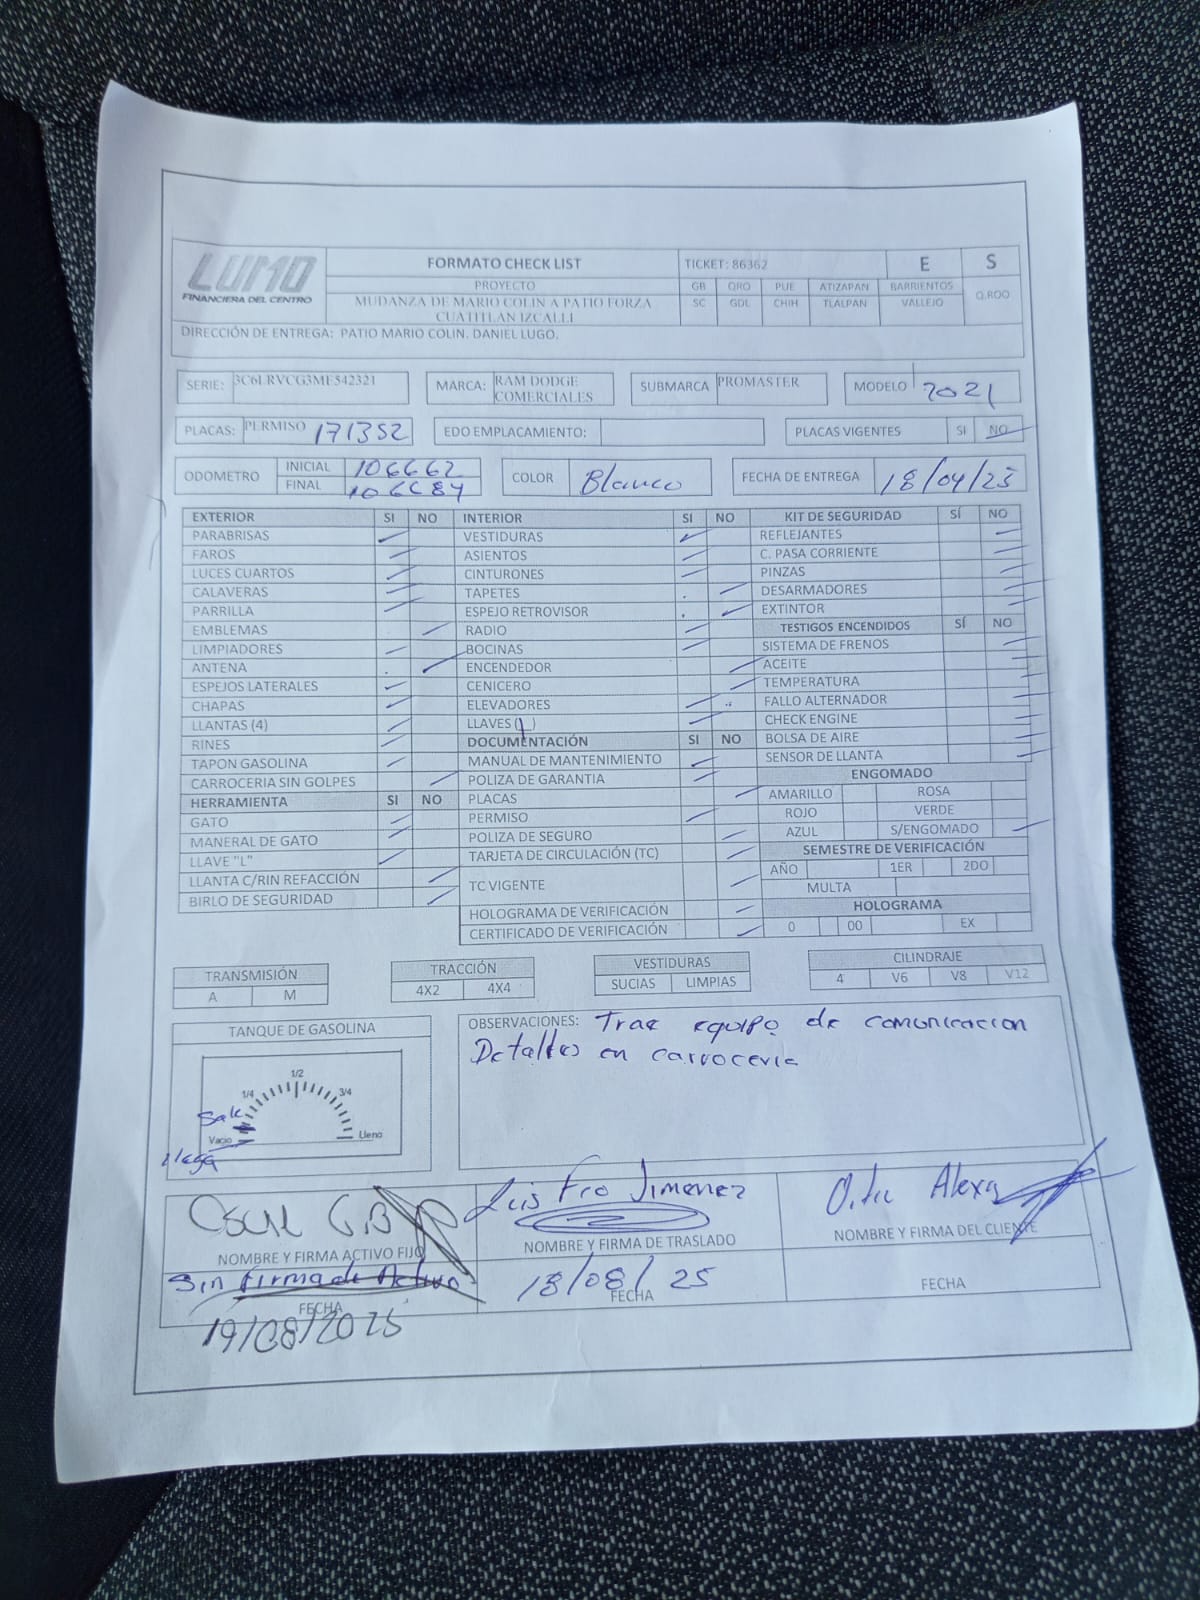 LUMO
FINANCIERA DEL CENTRO
FORMATO CHECK LIST
TICKET: 86362
E
S
PROYECTO
GB QRO PUE ATIZAPAN BARRIENTOS
Q.ROO
MUDANZA DE MARIO COLIN A PATIO FORZA
CUATITLAN IZCALLI
SC GDL CHIH TLALPAN VALLEJO
DIRECCIÓN DE ENTREGA: PATIO MARIO COLIN. DANIEL LUGO.
SERIE: 3C6LRVCG3ME542321
MARCA: RAM DODGE
COMERCIALES
SUBMARCA PROMASTER
MODELO 2021
PLACAS: PERMISO 171352
EDO EMPLACAMIENTO:
PLACAS VIGENTES SI NO
ODOMETRO INICIAL 106662
FINAL 106684
COLOR Blanco
FECHA DE ENTREGA 18/04/25
EXTERIOR SI NO INTERIOR SI NO KIT DE SEGURIDAD SÍ NO
PARABRISAS VESTIDURAS REFLEJANTES
FAROS ASIENTOS C. PASA CORRIENTE
LUCES CUARTOS CINTURONES PINZAS
CALAVERAS TAPETES DESARMADORES
PARRILLA ESPEJO RETROVISOR EXTINTOR
EMBLEMAS RADIO TESTIGOS ENCENDIDOS SÍ NO
LIMPIADORES BOCINAS SISTEMA DE FRENOS
ANTENA ENCENDEDOR ACEITE
ESPEJOS LATERALES CENICERO TEMPERATURA
CHAPAS ELEVADORES FALLO ALTERNADOR
LLANTAS (4) LLAVES (1) CHECK ENGINE
RINES DOCUMENTACIÓN SI NO BOLSA DE AIRE
TAPON GASOLINA MANUAL DE MANTENIMIENTO SENSOR DE LLANTA
CARROCERIA SIN GOLPES POLIZA DE GARANTIA ENGOMADO
HERRAMIENTA SI NO PLACAS AMARILLO ROSA
GATO PERMISO ROJO VERDE
MANERAL DE GATO POLIZA DE SEGURO AZUL S/ENGOMADO
LLAVE "L" TARJETA DE CIRCULACIÓN (TC) SEMESTRE DE VERIFICACIÓN
LLANTA C/RIN REFACCIÓN TC VIGENTE AÑO 1ER 2DO
BIRLO DE SEGURIDAD MULTA
HOLOGRAMA DE VERIFICACIÓN HOLOGRAMA
CERTIFICADO DE VERIFICACIÓN 0 00 EX
TRANSMISIÓN TRACCIÓN VESTIDURAS CILINDRAJE
A M 4X2 4X4 SUCIAS LIMPIAS 4 V6 V8 V12
TANQUE DE GASOLINA
1/4 1/2 3/4
Sale
Vacio Lleno
llega
OBSERVACIONES: Trae equipo de comunicacion
Detalles en carroceria
Oscar G.B
NOMBRE Y FIRMA ACTIVO FIJO
Sin firma de Activo
FECHA
19/08/2025
Luis Fco Jimenez
NOMBRE Y FIRMA DE TRASLADO
18/08/25
FECHA
Alexa
NOMBRE Y FIRMA DEL CLIENTE
FECHA